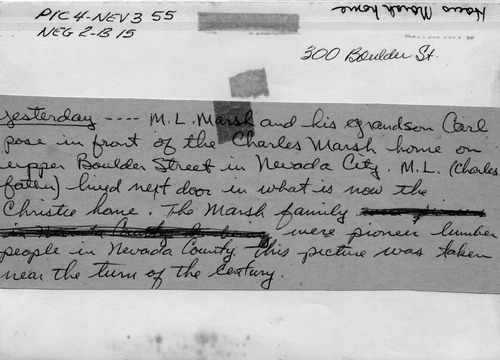 PIC 4-NEV 3 55
NEG 2-B 15
Haus Marsh home
300 Boulder St.
yesterday ---- M.L. Marsh and his grandson Carl
pose in front of the Charles Marsh home on
upper Boulder Street in Nevada City. M.L. (Charles
father) lived next door in what is now the
Christie home. The Marsh family
were pioneer lumber
people in Nevada County. This picture was taken
near the turn of the century.